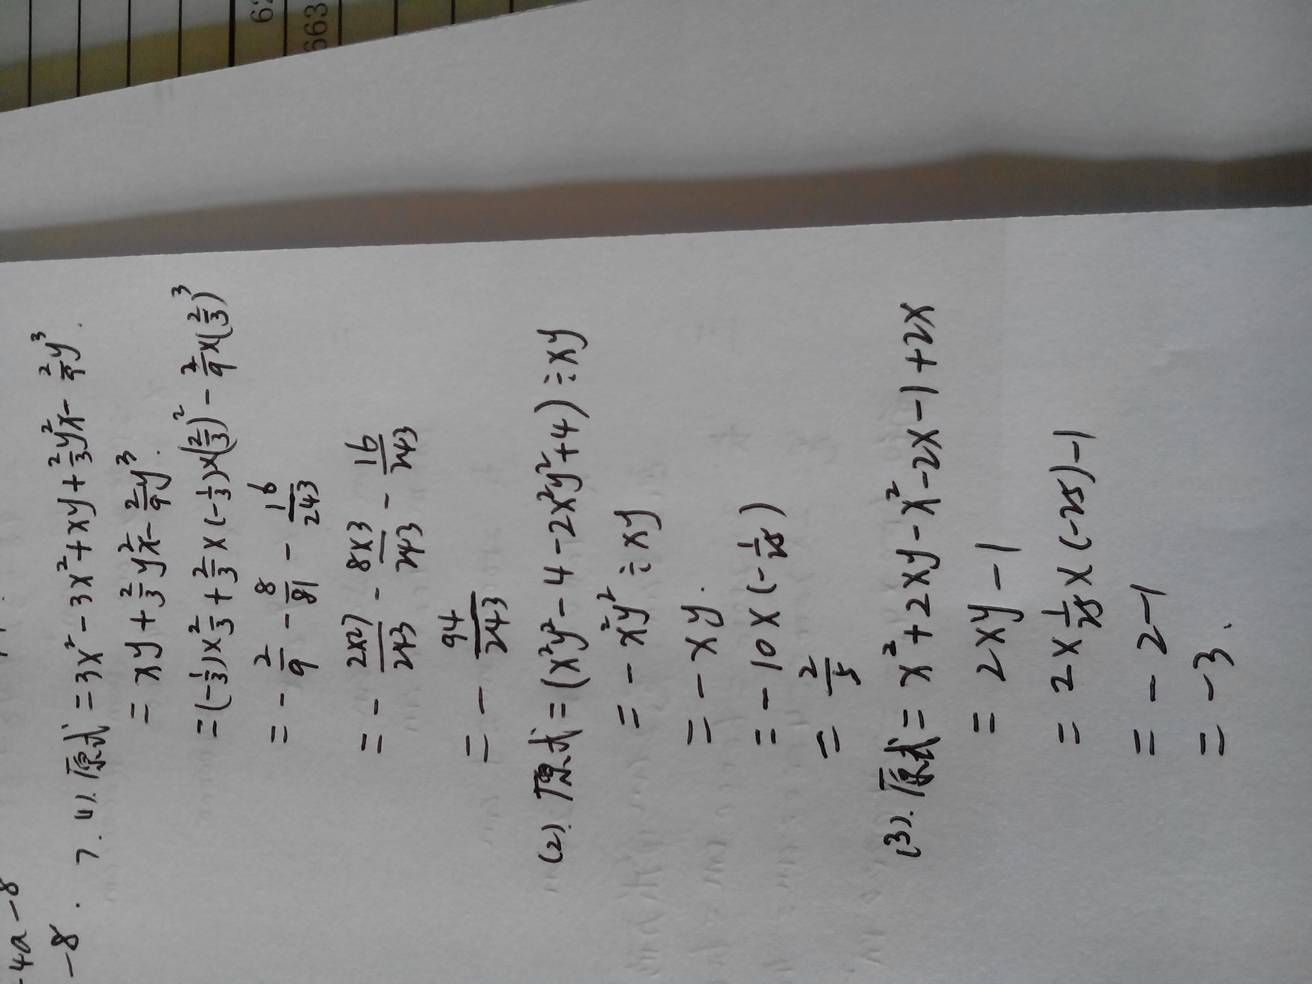 -4a-8
-8.
7.(1).原式=3x²-3x²+xy+2/3y²x-2/9y³.
=xy+2/3y²x-2/9y³.
=(-1/3)×2/3+2/3×(-1/3)×(2/3)²-2/9×(2/3)³
=-2/9-8/81-16/243
=-2×27/243-8×3/243-16/243
=-94/243
(2).原式=(x²y²-4-2x²y²+4)÷xy
=-x²y²÷xy
=-xy.
=-10×(-1/25)
=2/5
(3).原式=x²+2xy-x²-2x-1+2x
=2xy-1
=2×1/25×(-25)-1
=-2-1
=-3.
663